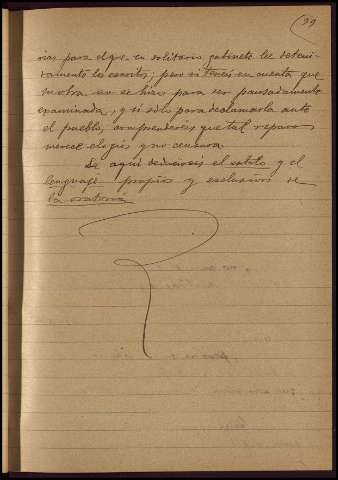 99
rias para el que en solitario gabinete lee deteni-
damente lo escrito; pero si teneis en cuenta que
su obra no se hizo para ser pausadamente
examinada, y si solo para declamarla ante
el pueblo, comprendereis que tal reparo
merece elogios y no censura.
De aqui deducireis el estilo y el
lenguaje propios y exclusivos de
la oratoria